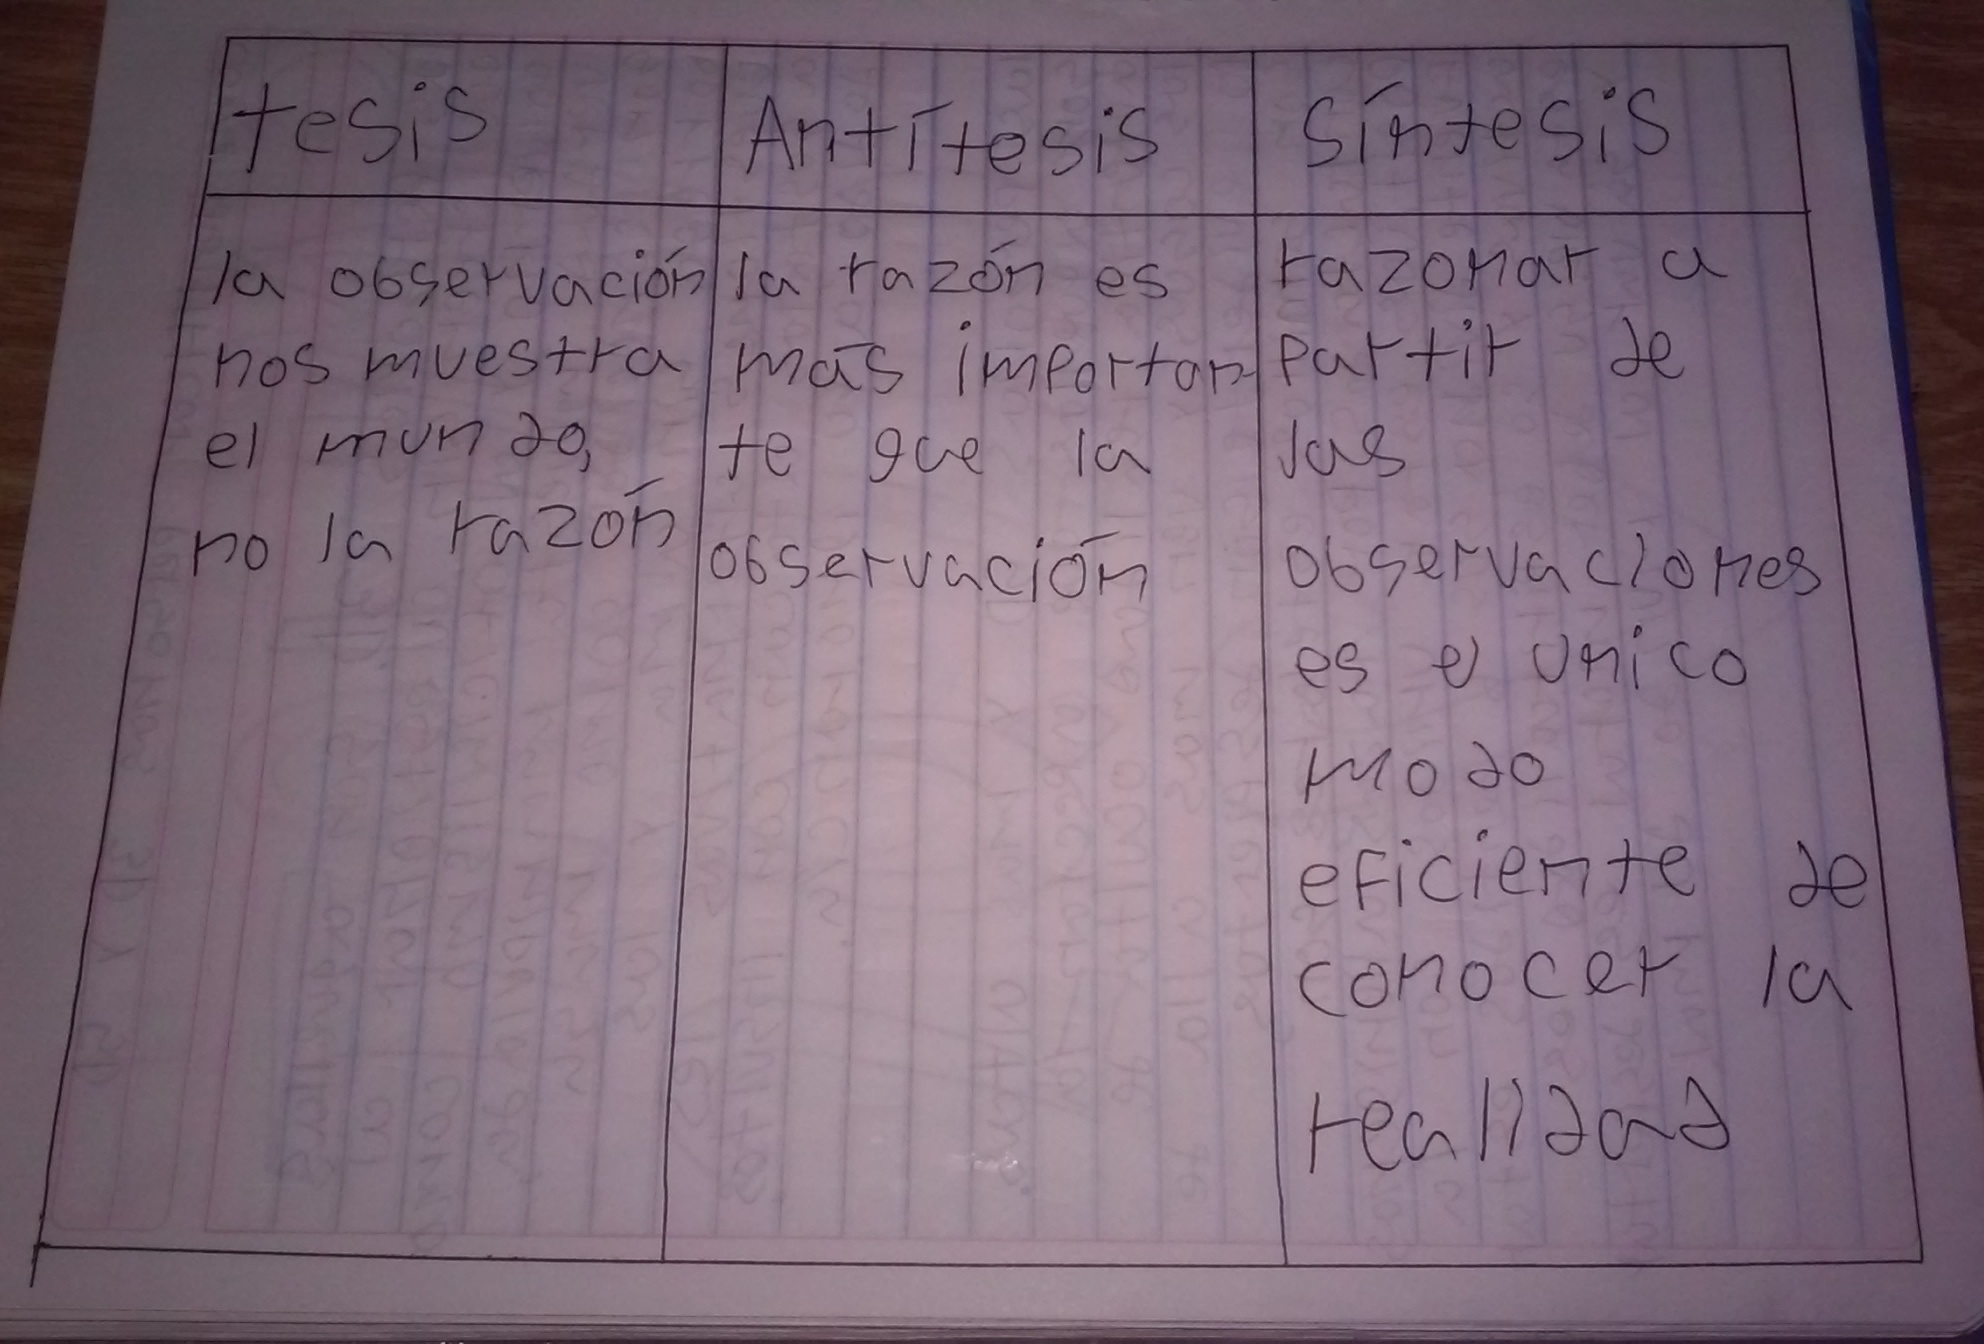 tesis
Antítesis
Síntesis
la observación
nos muestra
el mundo,
no la razón
la razón es
más importan
te que la
observación
razonar a
partir de
las
observaciones
es el unico
modo
eficiente de
conocer la
realidad